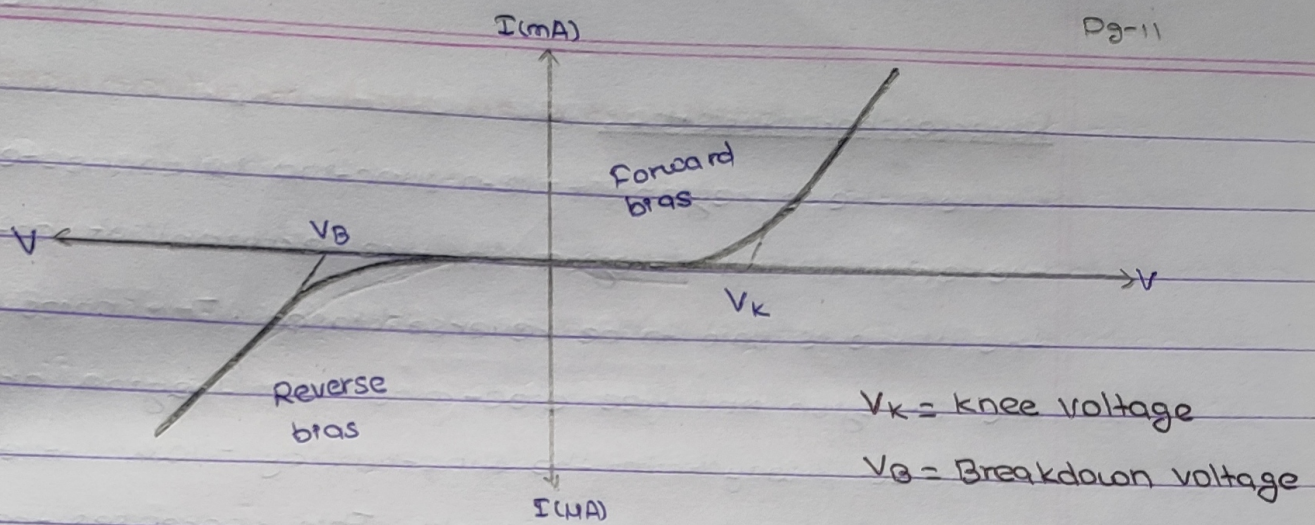 I(mA)
Pg-11
Forward
bias
VB
V
V
VK
Reverse
bias
VK = knee voltage
VB = Breakdown voltage
I(μA)